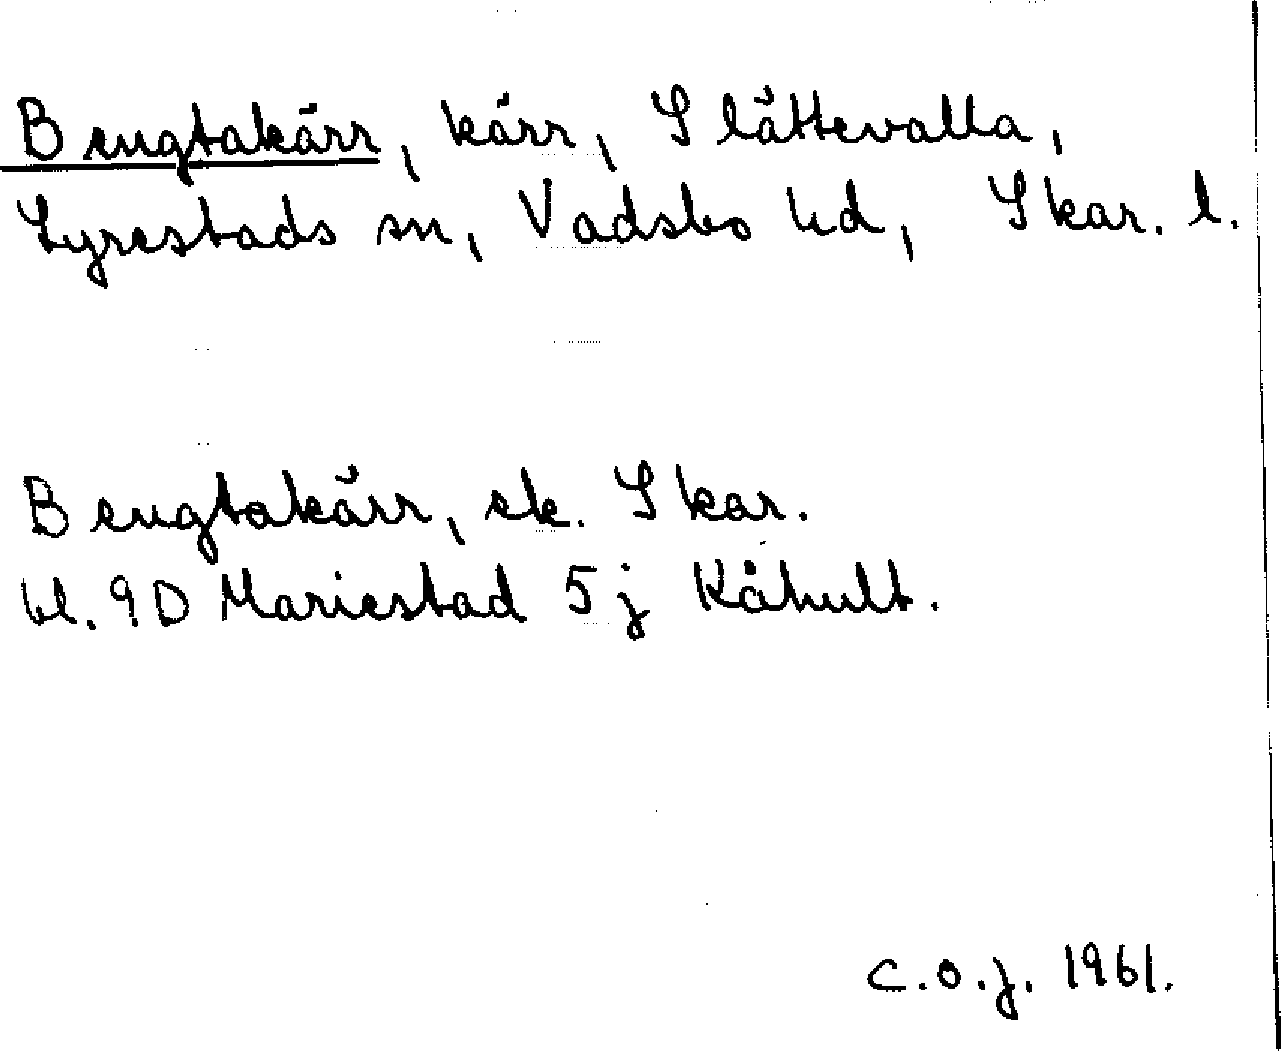 Bengtakärr, kärr, Slättevalla,
Lyrestads sn, Vadsbo hd, Skar. l.
Bengtakärr, ek. Skar.
bl. 9D Mariestad 5j Kåhult.
C.O.J. 1961.